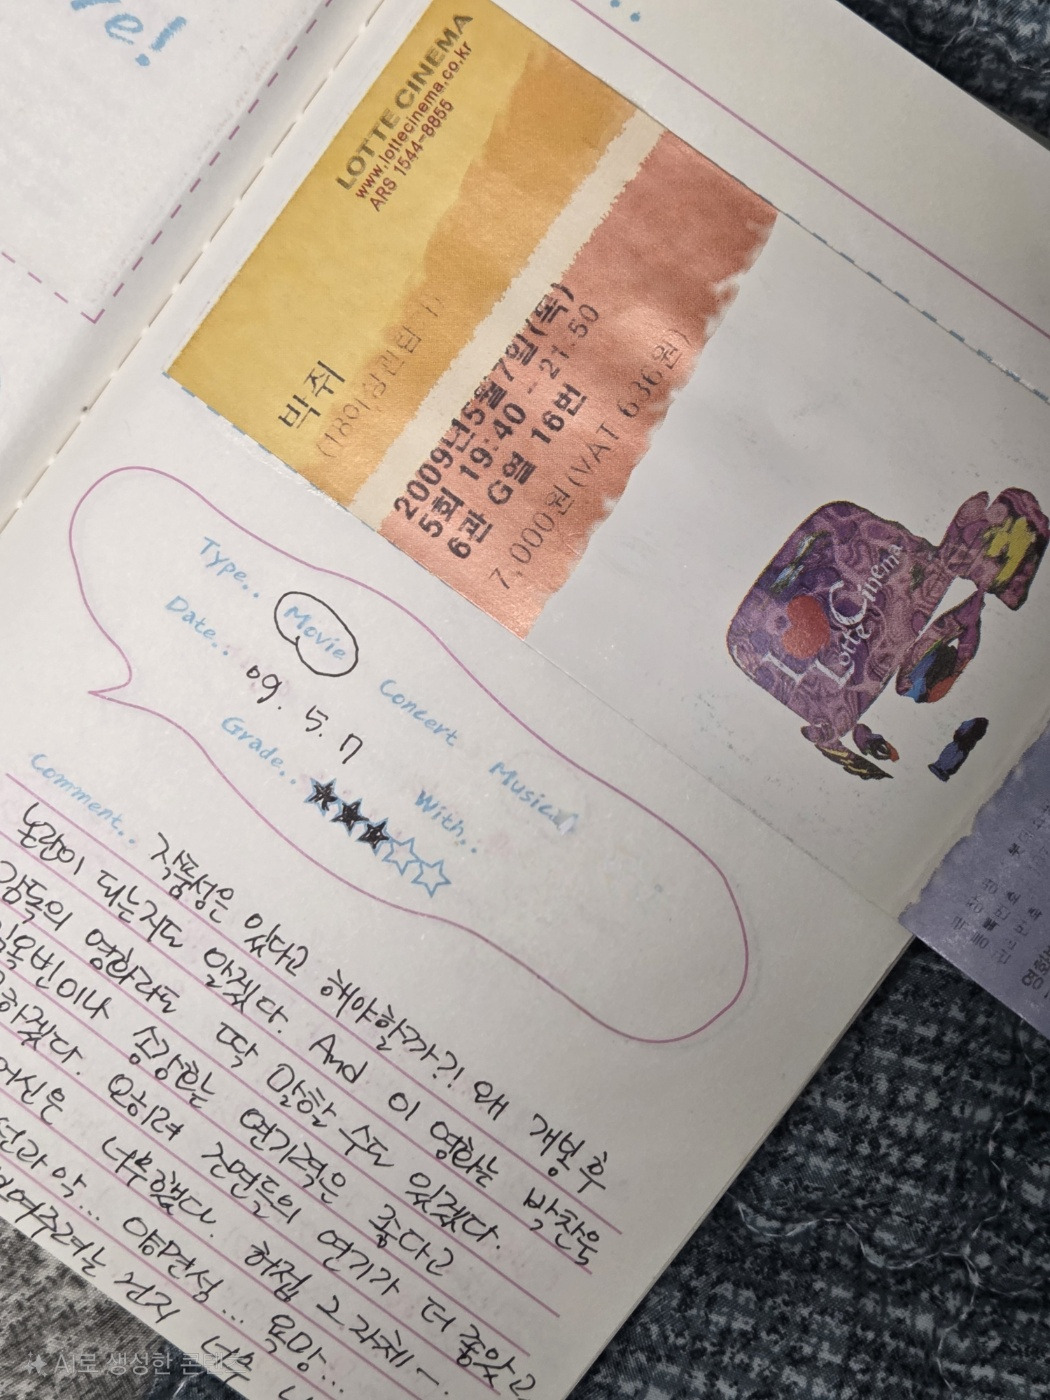 ve!
LOTTE CINEMA
www.lottecinema.co.kr
ARS 1544-8855
박쥐
(18이상관람가)
2009년5월7일(목)
5회 19:40 - 21:50
6관 G열 16번
7,000원(VAT 636원)
I Lotte Cinema
Type.. Movie Concert Musical
Date.. 09. 5. 7
Grade.. With..
Comment..
작품성은 있다고 해야할까?! 왜 개봉 후
논란이 되는지도 알겠다. And 이 영화는 박찬욱
감독의 영화라고 딱 말할 수도 있겠다.
김옥빈이나 송강호는 연기력은 좋다고
하겠다. 오히려 조연들의 연기가 더 좋았고
신은 너무했다. 하지만 그 자체
악... 양면성... 욕망...
보여주려는 건지 너무
AI로 생성한 콘텐츠